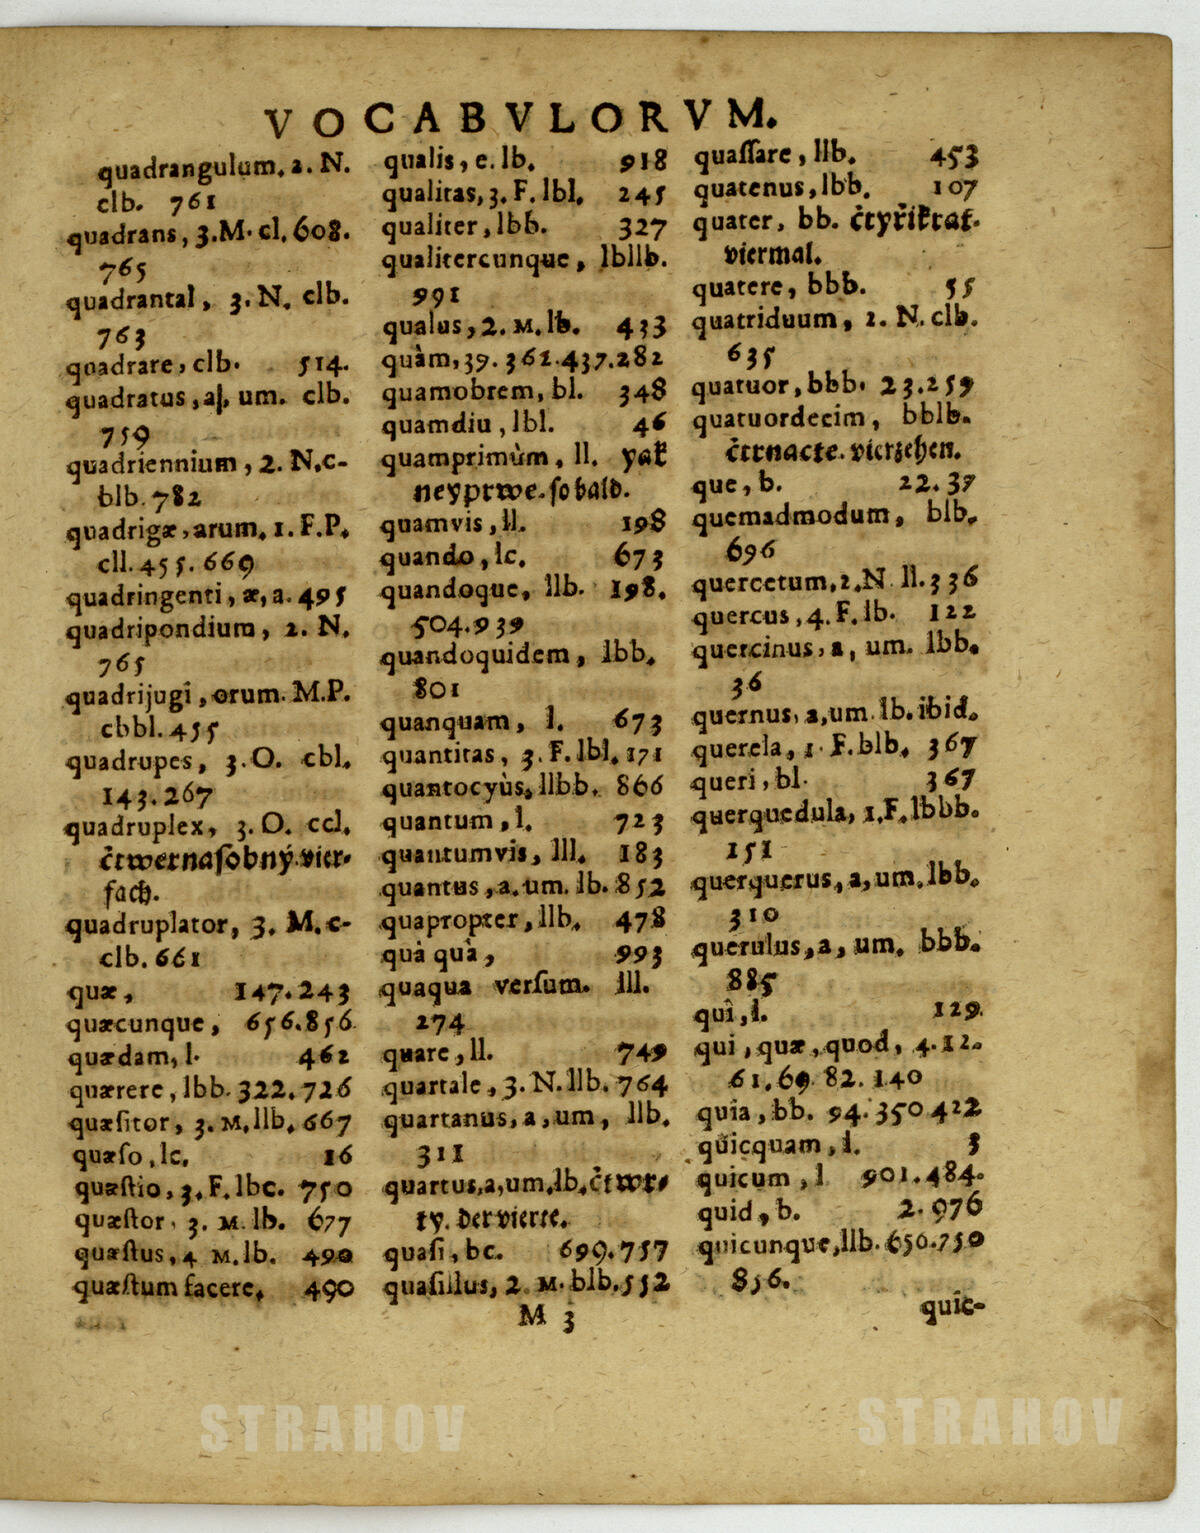 VOCABVLORVM.
quadrangulum. 2. N.
clb. 761
quadrans, 3. M. cl. 608.
765
quadrantal, 3. N. clb.
763
quadrare, clb. 514.
quadratus, a, um. clb.
759
quadriennium, 2. N. c-
blb. 782
quadrigæ, arum. 1. F. P.
cll. 455. 669
quadringenti, æ, a. 495
quadripondium, 2. N.
765
quadrijugî, orum. M.P.
cbbl. 455
quadrupes, 3. O. cbl.
143. 267
quadruplex, 3. O. ccl.
čtwernaſobný. vier-
fach.
quadruplator, 3. M. c-
clb. 661
quæ, 147. 243
quæcunque, 656. 856
quædam, l. 462
quærere, lbb. 322. 726
quæſitor, 3. M. llb. 667
quæſo, lc. 16
quæſtio, 3. F. lbc. 750
quæſtor, 3. M. lb. 677
quæſtus, 4 M. lb. 490
quæſtum facere, 490
qualis, e. lb. 918
qualitas, 3. F. lbl. 245
qualiter, lbb. 327
qualitercunque, lbllb.
991
qualus, 2. M. lb. 433
quàm, 39. 361. 437. 282
quamobrem, bl. 348
quamdiu, lbl. 46
quamprimùm, ll. yak
neyprwe. ſo bald.
quamvis, ll. 198
quando, lc. 673
quandoque, llb. 198.
504. 939
quandoquidem, lbb.
801
quanquam, l. 673
quantitas, 3. F. lbl. 171
quantocyùs, llbb. 866
quantum, l. 723
quantumvis, lll. 183
quantus, a. um. lb. 852
quapropter, llb. 478
quà quà, 993
quaqua verſum. lll.
274
quare, ll. 749
quartale, 3. N. llb. 764
quartanus, a, um, llb.
311
quartus, a, um, lb. čtwr-
ty. der vierte.
quaſi, bc. 699. 757
quaſillus, 2 M. blb. 552
M 3
quaſſare, llb. 453
quatenus, lbb. 107
quater, bb. čtyřikrat.
viermal.
quatere, bbb. 55
quatriduum, 2. N. clb.
635
quatuor, bbb. 23. 259
quatuordecim, bblb.
čtrnacte. vierzehen.
que, b. 22. 37
quemadmodum, blb.
696
quercetum, 2. N ll. 336
quercus, 4. F. lb. 122
quercinus, a, um. lbb.
36
quernus, a, um. lb. ibid.
querela, 1. F. blb. 367
queri, bl. 367
querquedula, 1. F. lbbb.
151
querquerus, a, um. lbb.
310
querulus, a, um. bbb.
885
quî, l. 129.
qui, quæ, quod, 4. 12.
61. 69. 82. 140
quia, bb. 94. 350 422
quicquam, l. 3
quicum, l 901. 484.
quid, b. 2. 976
quicunque, llb. 650. 750
856.
quic-
STRAHOV STRAHOV